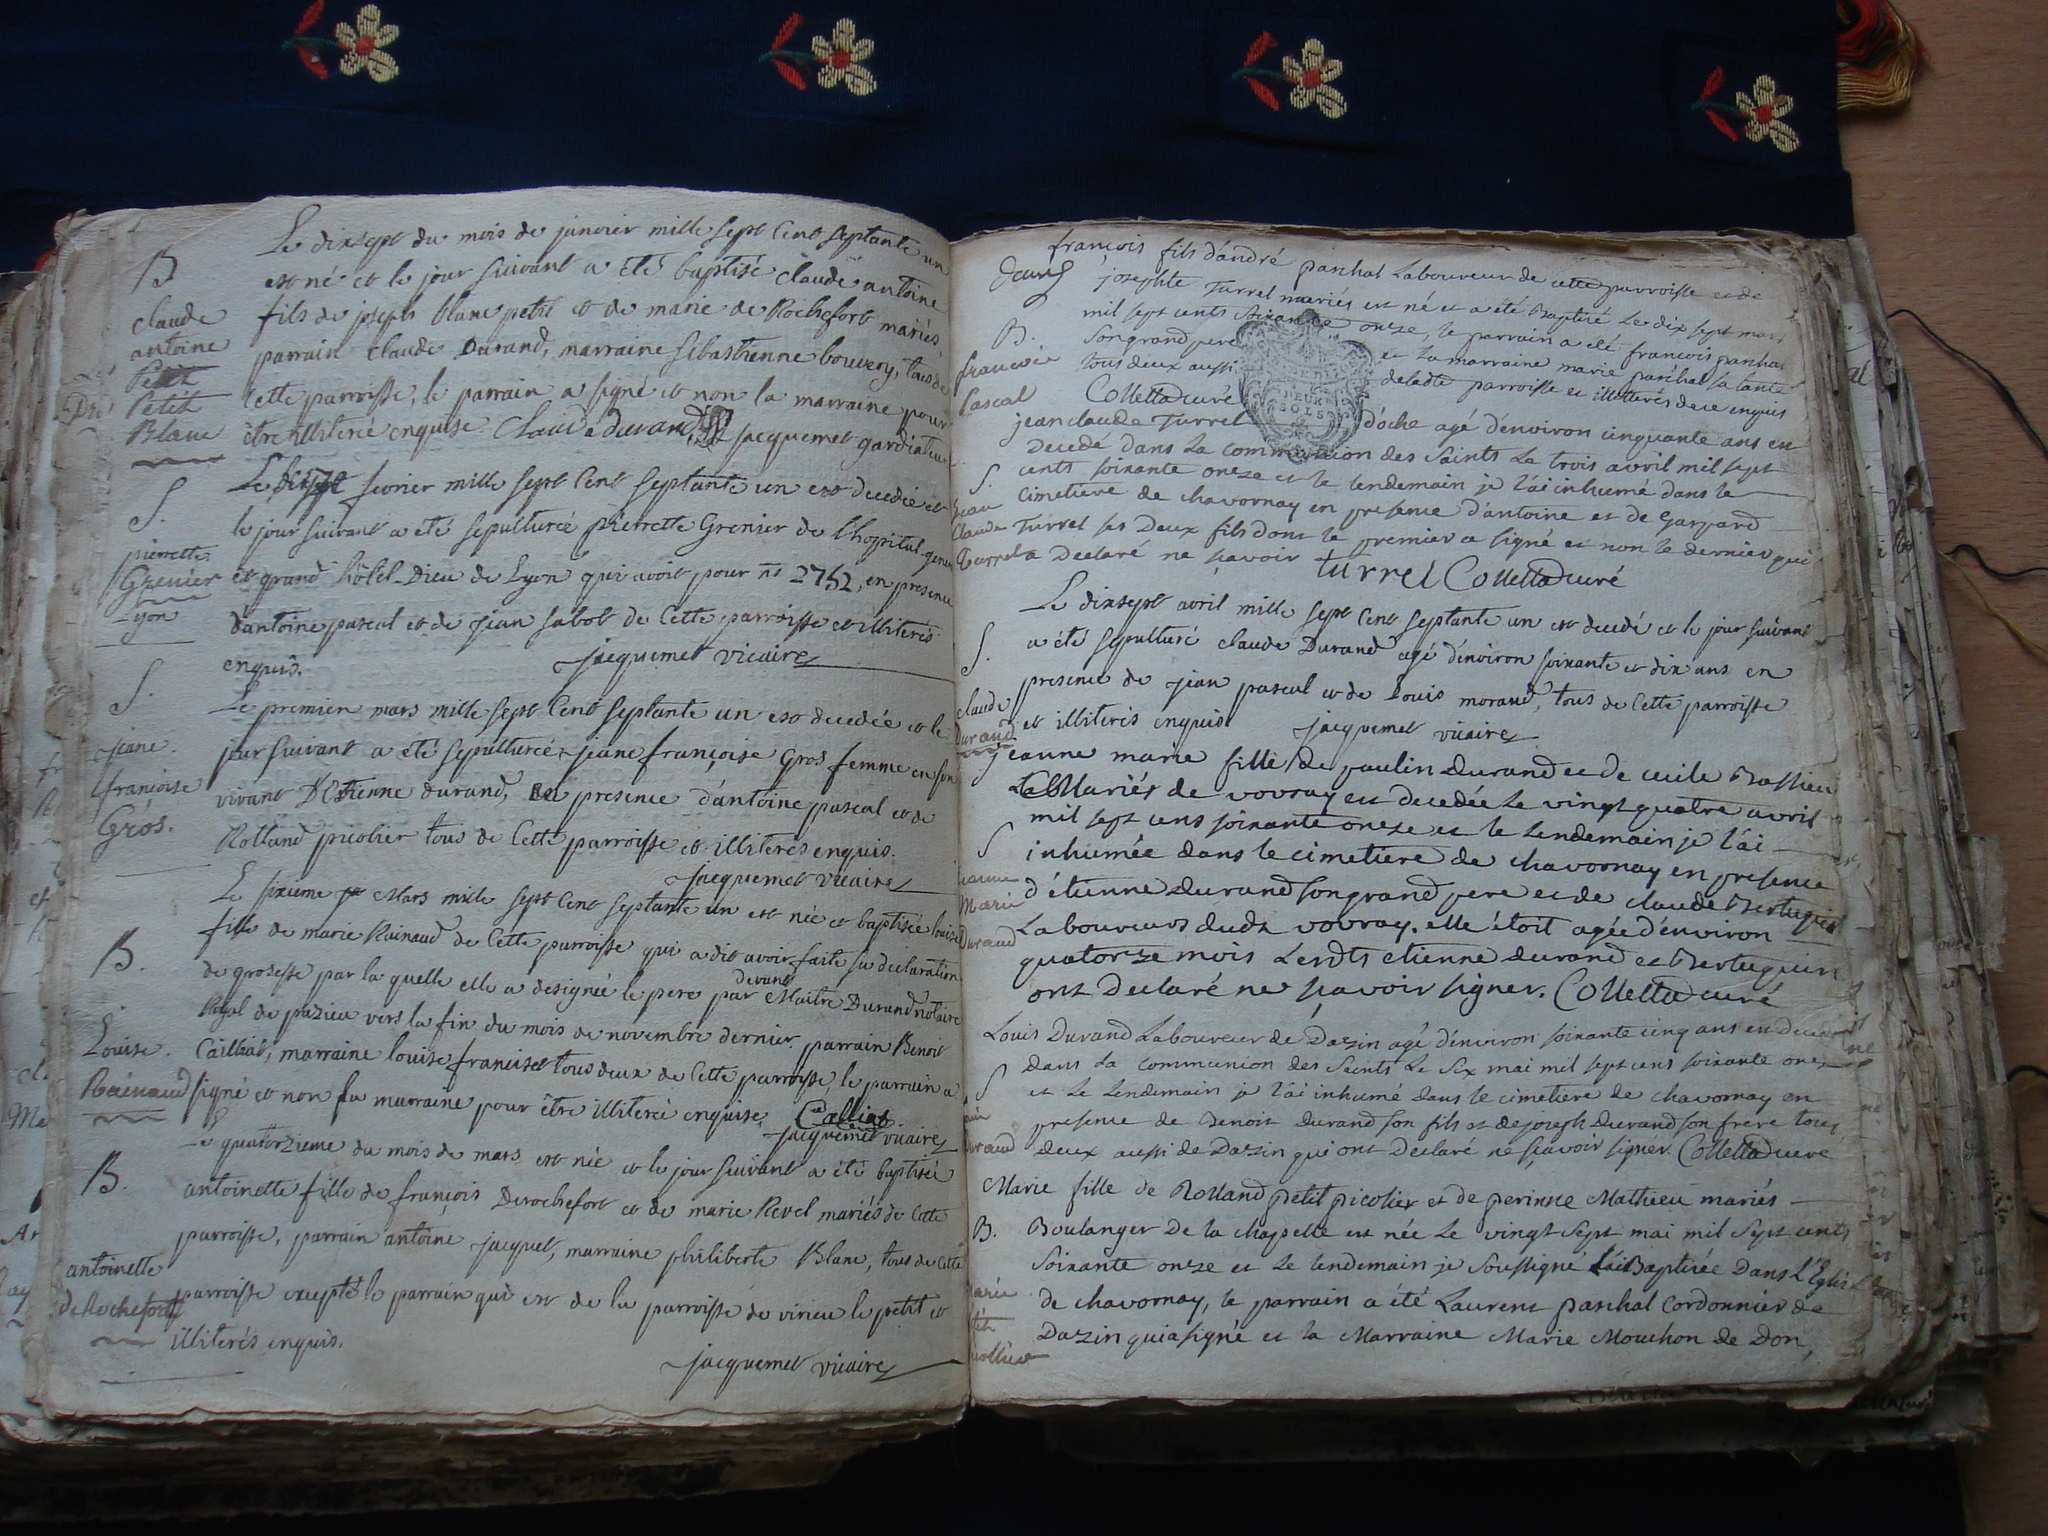 B
claude
antoine
Petit
Petit
Blanc
Le dixsept du mois de janvier mille sept cent septante un
est né et le jour suivant a été baptisé claude antoine
fils de joseph blanc petit et de marie de Rochefort mariés,
parrain claude Durand, marraine sébastienne bouvery, tous de
cette parroisse, le parrain a signé et non la marraine pour
être illiteré enquise. Claude durand jacquemet gardiateur
S.
pierrette
Grenier
Lyon
Le dixsept fevrier mille sept cent septante un est decedée et
le jour suivant a été sepulturée pierrette Grenier de l'hopital gener
et grand hôtel-Dieu de Lyon qui avoit pour n° 2752, en presence
d'antoine pascal et de jean sabot de cette parroisse et illiterés
enquis. jacquemet vicaire
S.
jeane
françoise
Gros.
Le premier mars mille sept cent septante un est decedée et le
jour suivant a été sepulturée jeane françoise Gros femme en son
vivant D'Etienne durand, en presence d'antoine pascal et de
Rolland picolier tous de cette parroisse et illiterés enquis.
jacquemet vicaire
B.
Louise.
Rainaud
Le sixieme Mars mille sept cent septante un est née et baptisée louise
fille de marie Rainaud de cette parroisse qui a dit avoir faite sa declaration
de grosesse par la quelle elle a designée le pere par devant Maître Durand notaire
Royal de pazieu vers la fin du mois de novembre dernier. parrain Benoit
Cailliat, marraine louise françoise tous deux de cette parroisse, le parrain a
signé et non la marraine pour être illiterée enquise. Calliat
jacquemet vicaire
B.
antoinette
de Rochefort
Le quatorzieme du mois de mars est née et le jour suivant a été baptisée
antoinette fille de françois Derochefort et de marie Revel mariés de cette
parroisse, parrain antoine jacquet, marraine philiberte Blanc, tous de cette
parroisse excepté le parrain qui est de la parroisse de virieu le petit et
illiterés enquis.
jacquemet vicaire
B.
francois
Pascal
françois fils d'andré paschal Laboureur de cette parroisse et de
josephte Turrel mariés est né et a été Baptisé Le dix sept mars
mil sept cents soixante onze, le parrain a été francois paschal
son grand pere et la marraine marie paschal sa tante
tous deux aussi deladte parroisse et illitterés de ce enquis
Colletta curé
S.
jean
Claude
Turrel
jean claude Turrel d'oche agé d'environ cinquante ans est
decedé dans la communion des Saints Le trois avril mil sept
cents soixante onze et le lendemain je l'ai inhumé dans le
cimetiere de chavornay en presence d'antoine et de Gaspard
Turrel ses deux fils dont le premier a signé et non le dernier qui
a Declaré ne sçavoir turrel Colletta curé
S.
claude
Durand
Le dixsept avril mille sept cent septante un est decedé et le jour suivant
a été sepulturé claude Durand agé d'environ soixante et dix ans en
presence de jean pascal et de louis morand, tous de cette parroisse
et illiterés enquis jacquemet vicaire
S
jeanne
Marie
Durand
jeanne marie fille de paulin durand et de cecile Brassieu
Mariés de vovray est decedée Le vingt quatre avril
mil sept cens soixante onze et le Lendemain je l'ai
inhumée dans le cimetiere de chavornay en presence
d'étienne durand son grand pere et de claude Bertuguin
Laboureurs dudt vovray. elle étoit agée d'environ
quatorze mois Lesdts etienne durand et Bertuguin
ont Declaré ne sçavoir signer. Colletta curé
S
Durand
Louis Durand Laboureur de Dazin agé d'environ soixante cinq ans est decedé
dans la communion des Saints Le Six mai mil sept cens soixante onze
et Le Lendemain je l'ai inhumé dans le cimetiere de chavornay en
presence de Benoit Durand son fils et de joseph Durand son frere tous
deux aussi de Dazin qui ont Declaré ne sçavoir signer Colletta curé
B.
Marie fille de Rolland petit picolier et de perinne Mathieu mariés
Boulanger de la chapelle est née Le vingt sept mai mil Sept cents
Soixante onze et Le lendemain je Soussigné l'ai Baptisée Dans L'Eglise
de chavornay, le parrain a été Laurent paschal Cordonnier de
Dazin qui a signé et la Marraine Marie Mouchon de Don,